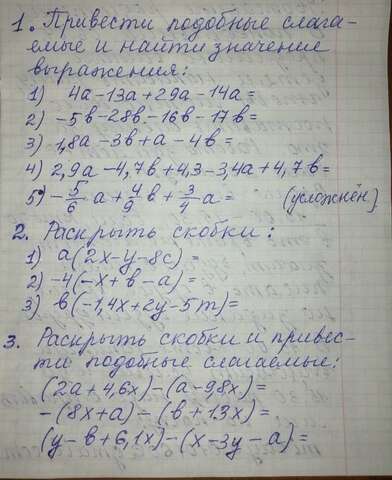 1. Привести подобные слага-
емые и найти значение
выражения:
1) 4а-13а+29а-14а=
2) -5в-28в-16в-17в=
3) 1,8а-3в+а-4в=
4) 2,9а-4,7в+4,3-3,4а+4,7в=
5*) -5/6 а+4/9 в+3/4 а= (усложнён)
2. Раскрыть скобки:
1) а(2х-у-8с)=
2) -4(-х+в-а)=
3) в(-1,4х+2у-5m)=
3. Раскрыть скобки и привес-
ти подобные слагаемые:
(2а+4,6х)-(а-98х)=
-(8х+а)-(в+1,3х)=
(у-в+6,1х)-(х-3у-а)=